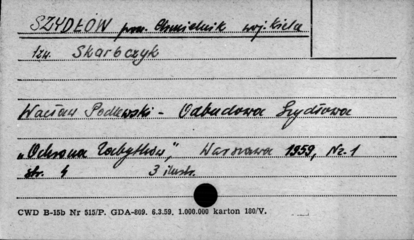 SZYDŁÓW pow. Chmielnik woj. Kielce
tzw. Skarbczyk
Wacław Podlewski - Odbudowa Szydłowa
"Ochrona Zabytków", Warszawa 1959, Nr. 1
str. 4 3 ilustr.
CWD B-15b Nr 515/P. GDA-809. 6.3.59. 1.000.000 karton 180/V.